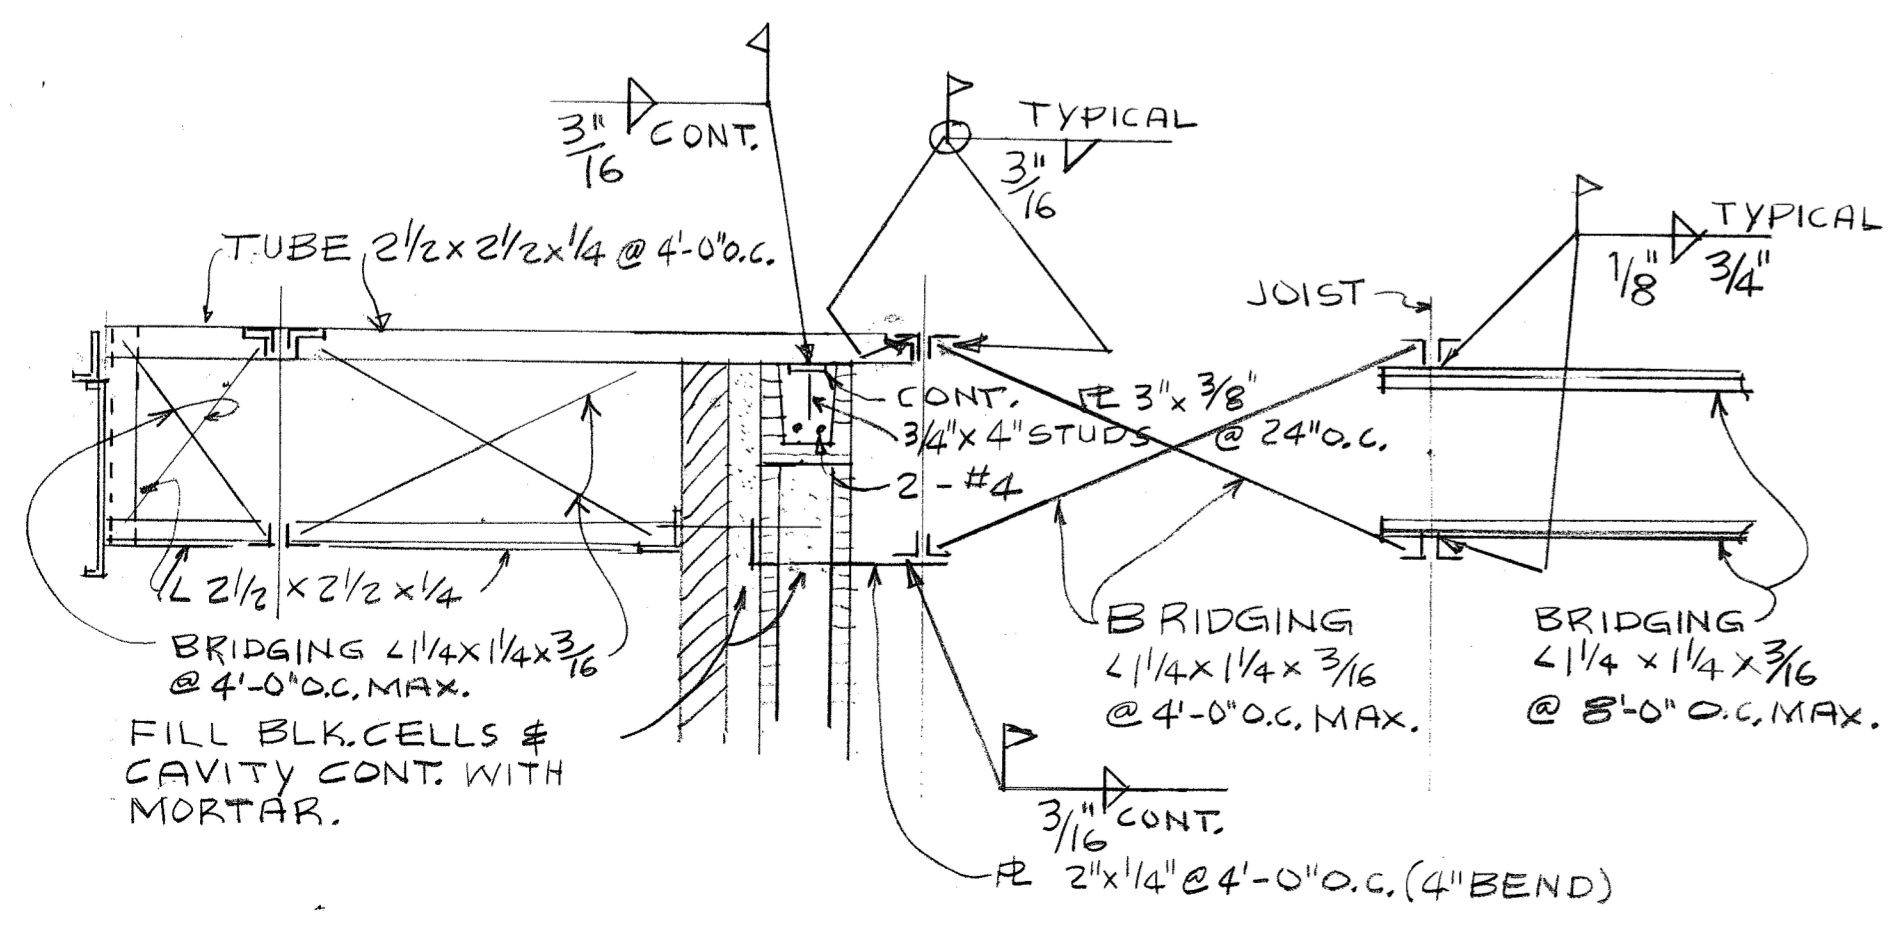 3/16" CONT.
TYPICAL
3/16"
TYPICAL
1/8" 3/4"
TUBE 2 1/2 x 2 1/2 x 1/4 @ 4'-0" O.C.
JOIST
CONT. PL 3" x 3/8"
3/4" x 4" STUDS @ 24" O.C.
2 - #4
L 2 1/2 x 2 1/2 x 1/4
BRIDGING L 1 1/4 x 1 1/4 x 3/16
@ 4'-0" O.C. MAX.
FILL BLK. CELLS &
CAVITY CONT. WITH
MORTAR.
BRIDGING
L 1 1/4 x 1 1/4 x 3/16
@ 4'-0" O.C. MAX.
BRIDGING
L 1 1/4 x 1 1/4 x 3/16
@ 8'-0" O.C. MAX.
3/16" CONT.
PL 2" x 1/4" @ 4'-0" O.C. (4" BEND)